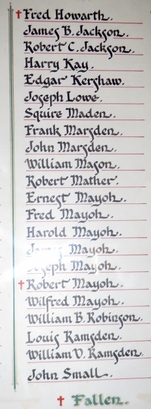 †Fred Howarth.
James B. Jackson.
Robert C. Jackson.
Harry Kay.
Edgar Kershaw.
Joseph Lowe.
Squire Maden.
Frank Marsden.
John Marsden.
William Mason.
Robert Mather.
Ernest Mayoh.
Fred Mayoh.
Harold Mayoh.
James Mayoh.
Joseph Mayoh.
†Robert Mayoh.
Wilfred Mayoh.
William B. Robinson.
Louis Ramsden.
William V. Ramsden.
John Small.
† Fallen.